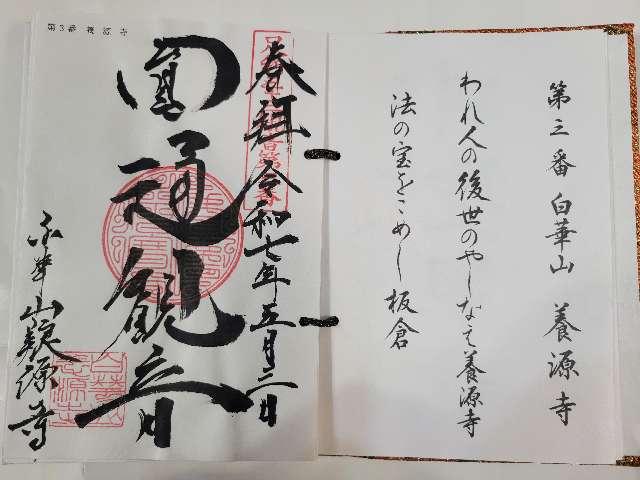 第三番 白華山 養源寺
われ人の後世のやしなゑ養源寺
法の宝をこめし板倉
第3番 養源寺
奉拝 令和七年五月二日
圓通観音
白華山養源寺